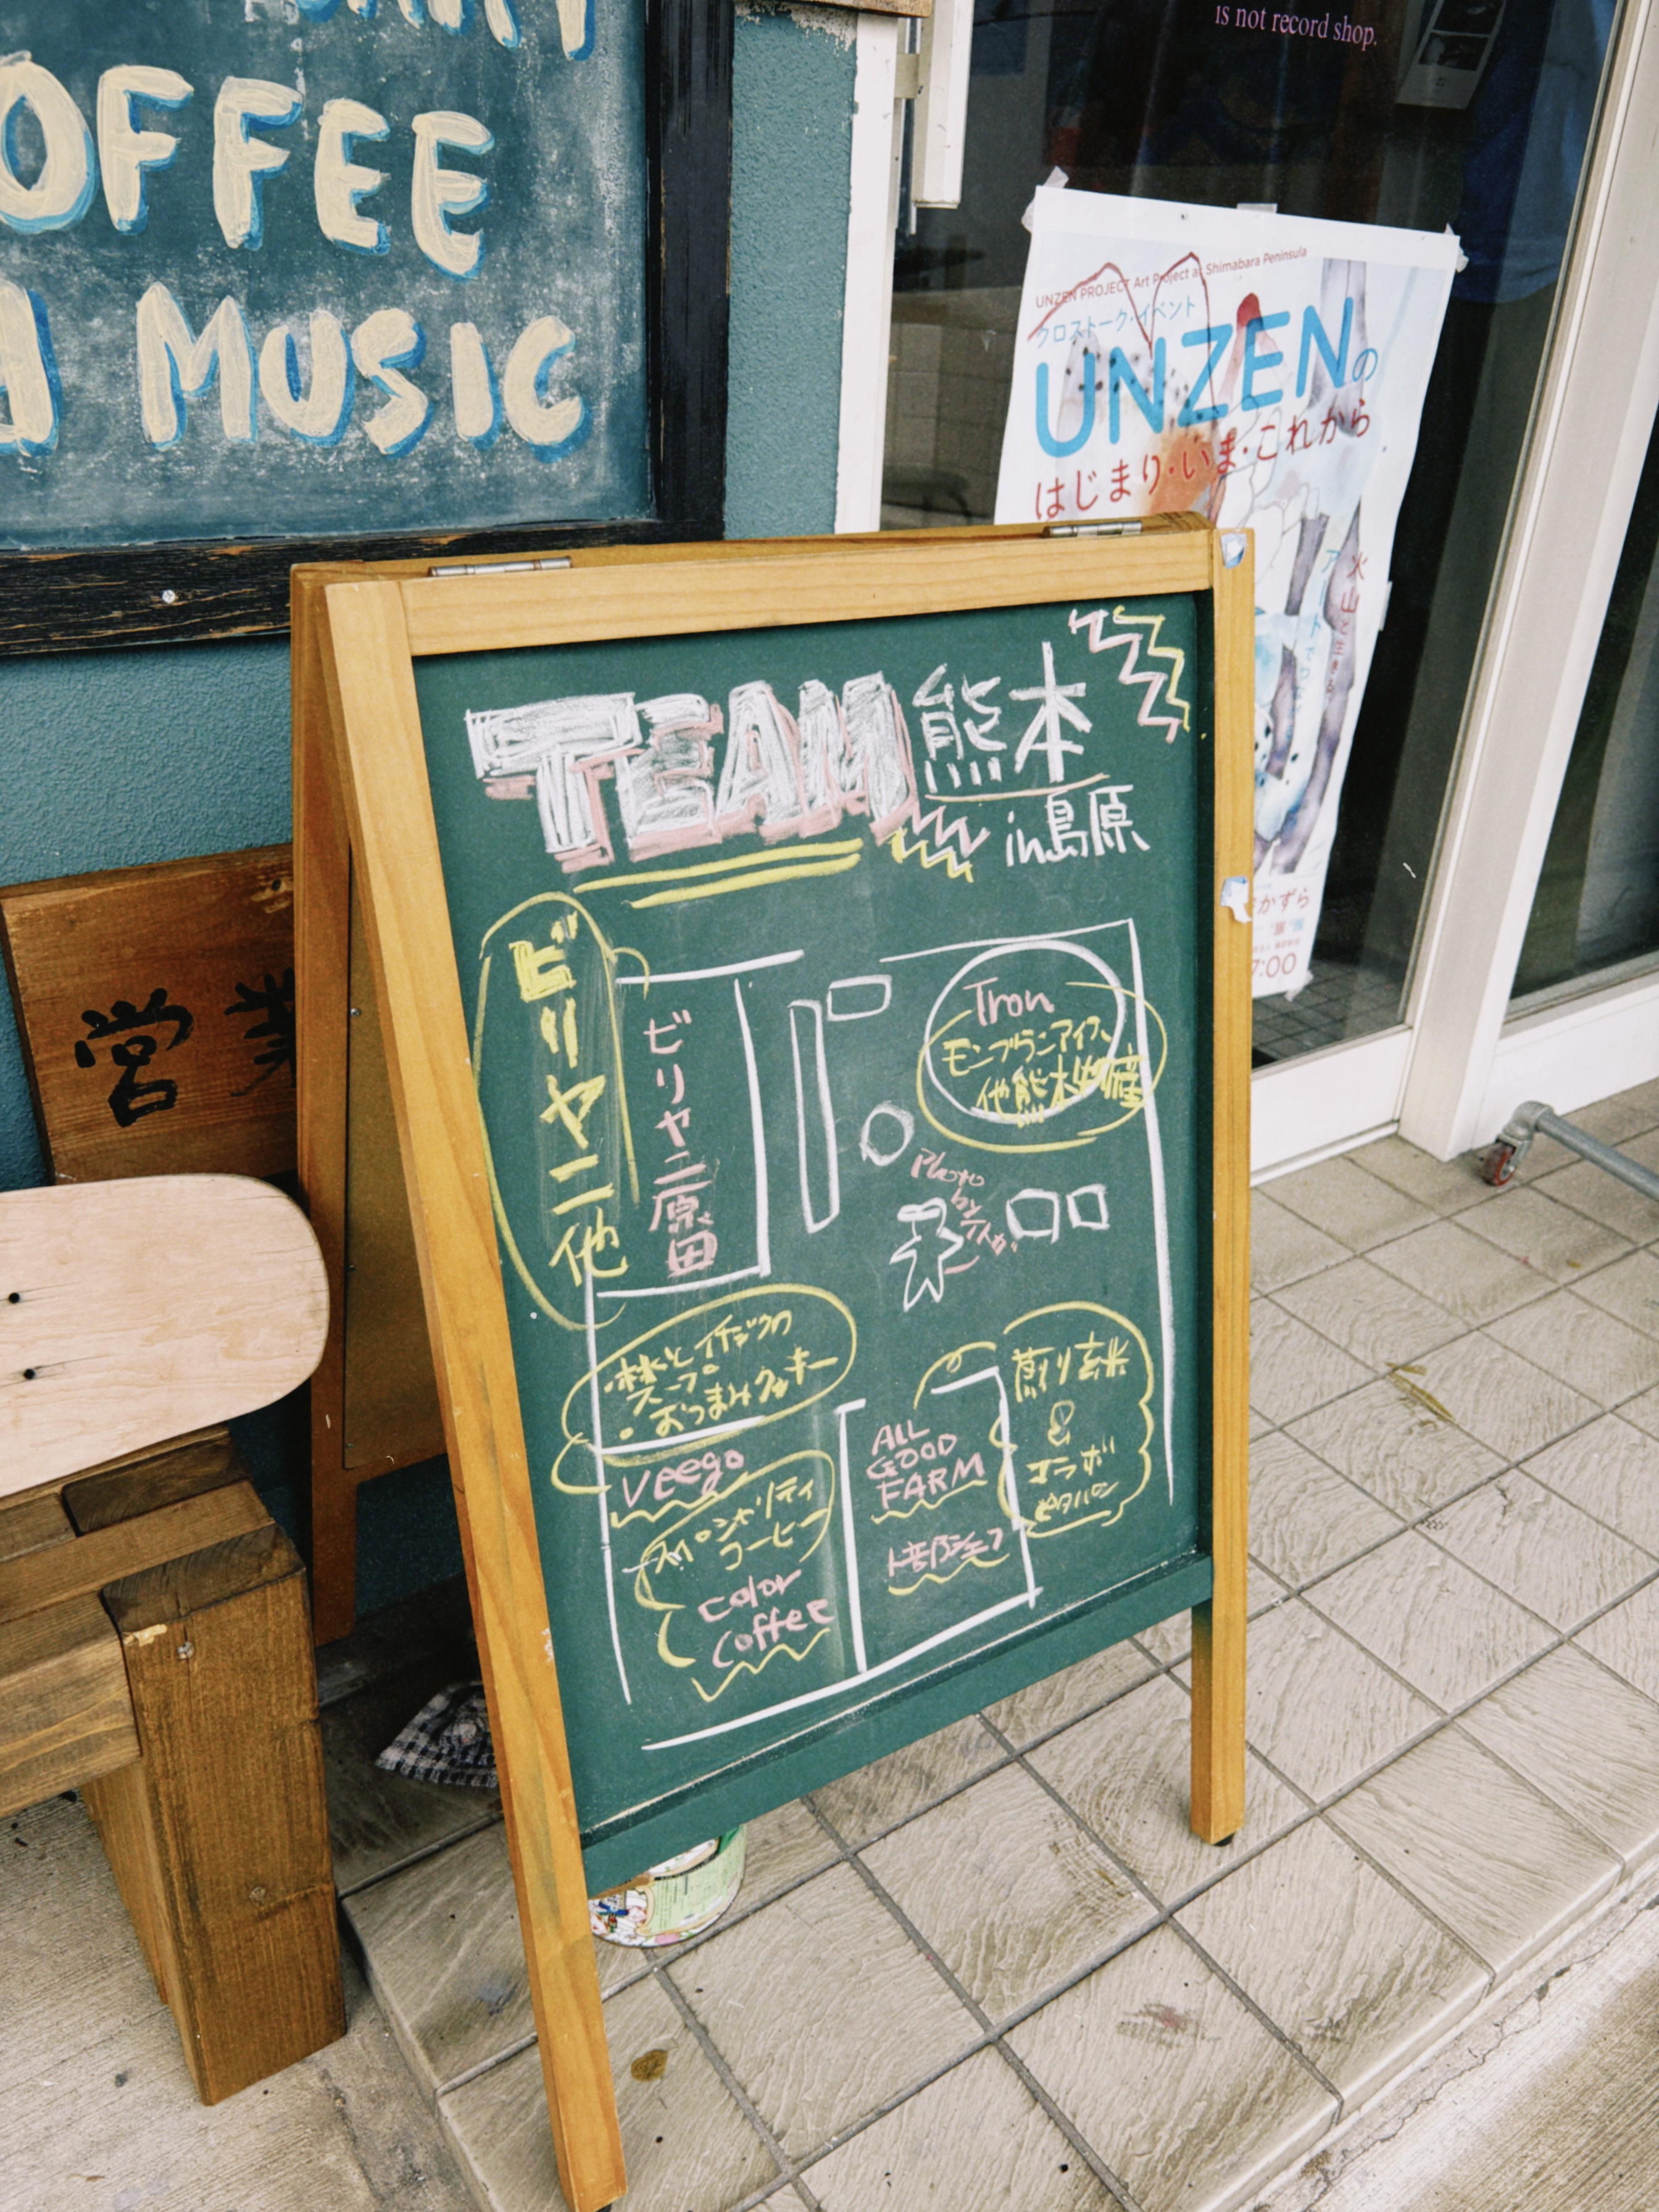 OFFEE
MUSIC
is not record shop.
UNZEN PROJECT Art Project at Shimabara Peninsula
クロストーク・イベント
UNZENの
はじまり・いま・これから
火山と生きる
かずら
7:00
営業
TEAM熊本
in島原
ビリヤニ他
ビリヤニ原田
Tron
モンブランアイス、
他熊本物産
Photo
by
・イチジクの
スープ
・おつまみクッキー
veego
スペシャリティ
コーヒー
color
coffee
ALL
GOOD
FARM
煎り玄米
&
コラボ
ピタパン